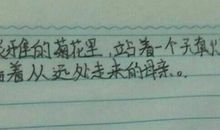 的菊花里,站着一个天真
着从远处走来的母亲。